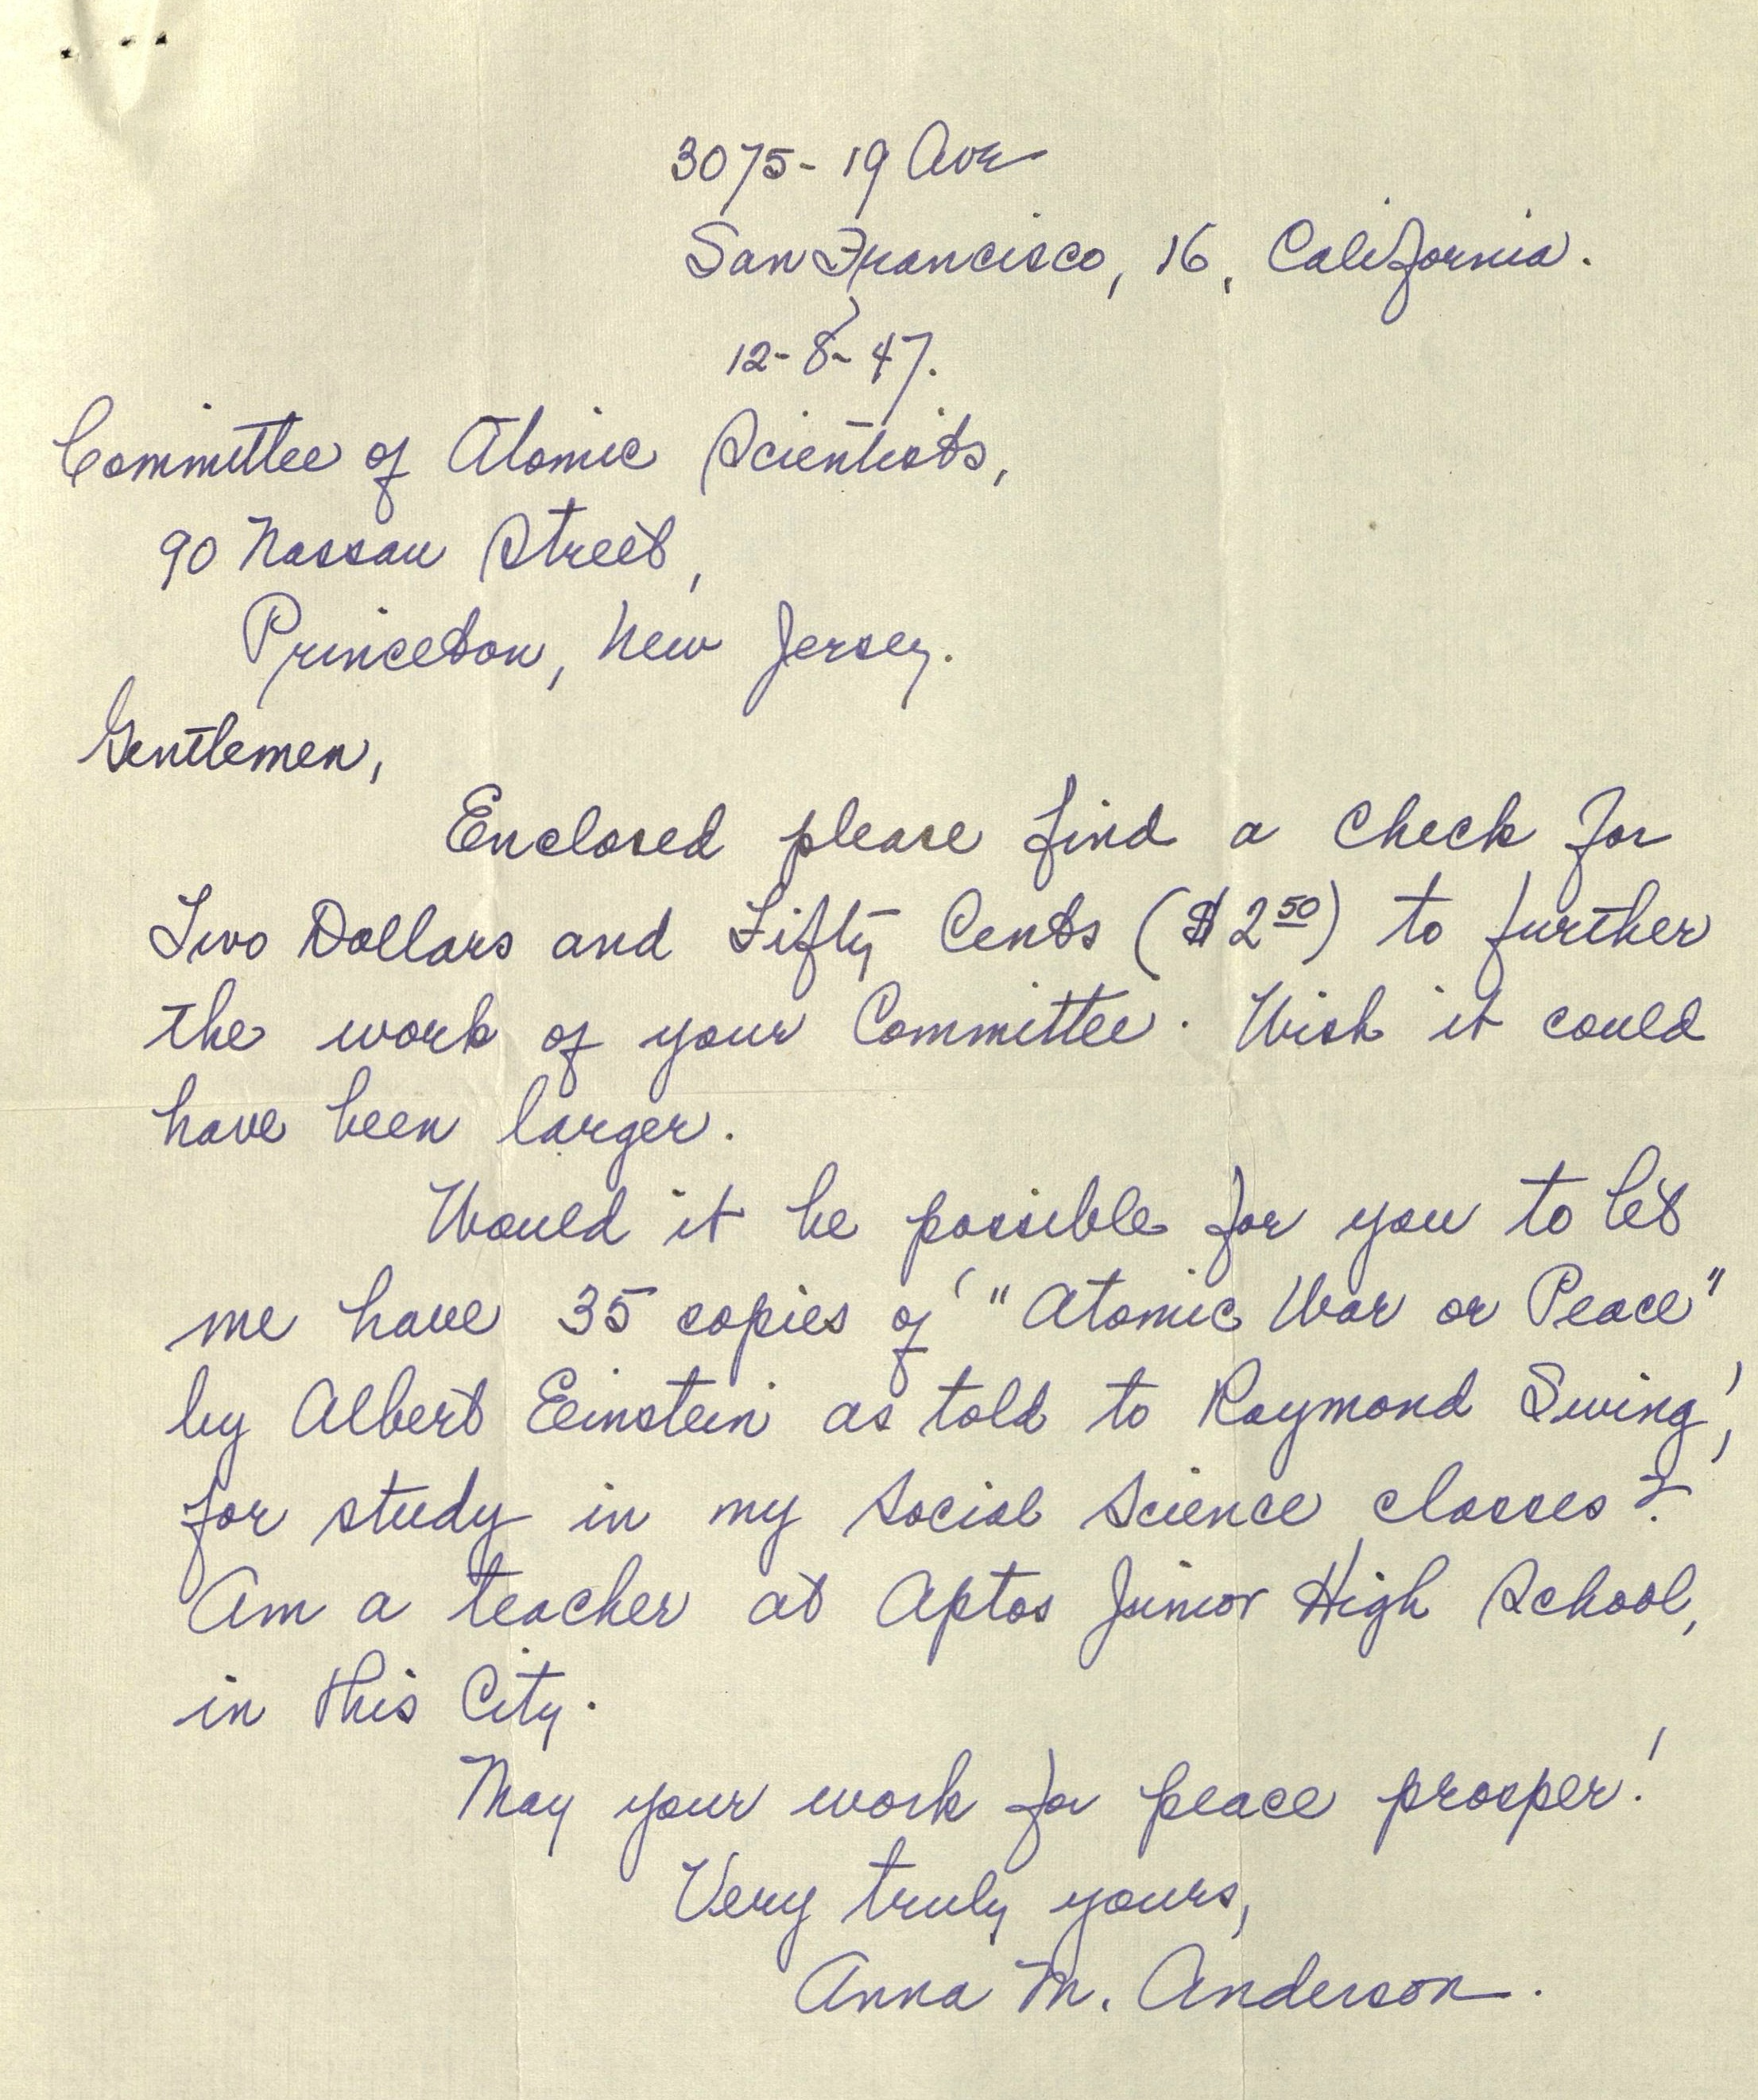 3075 - 19 Ave
San Francisco, 16, California.
12-8-47.
Committee of Atomic Scientists,
90 Nassau Street,
Princeton, New Jersey.
Gentlemen,
Enclosed please find a check for
Two Dollars and Fifty Cents ($2 50) to further
the work of your Committee. Wish it could
have been larger.
Would it be possible for you to let
me have 35 copies of "Atomic War or Peace"
by Albert Einstein as told to Raymond Swing,
for study in my Social Science classes?
Am a teacher at Aptos Junior High School,
in this City.
May your work for peace prosper!
Very truly yours,
Anna M. Anderson.